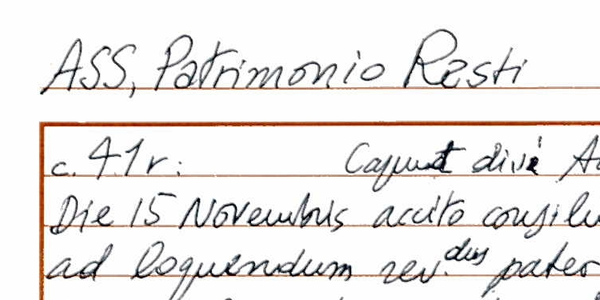 ASS, Patrimonio Resti
c. 41r: divi
Die 15 Novembris accito
ad loquendum rev.dus pater